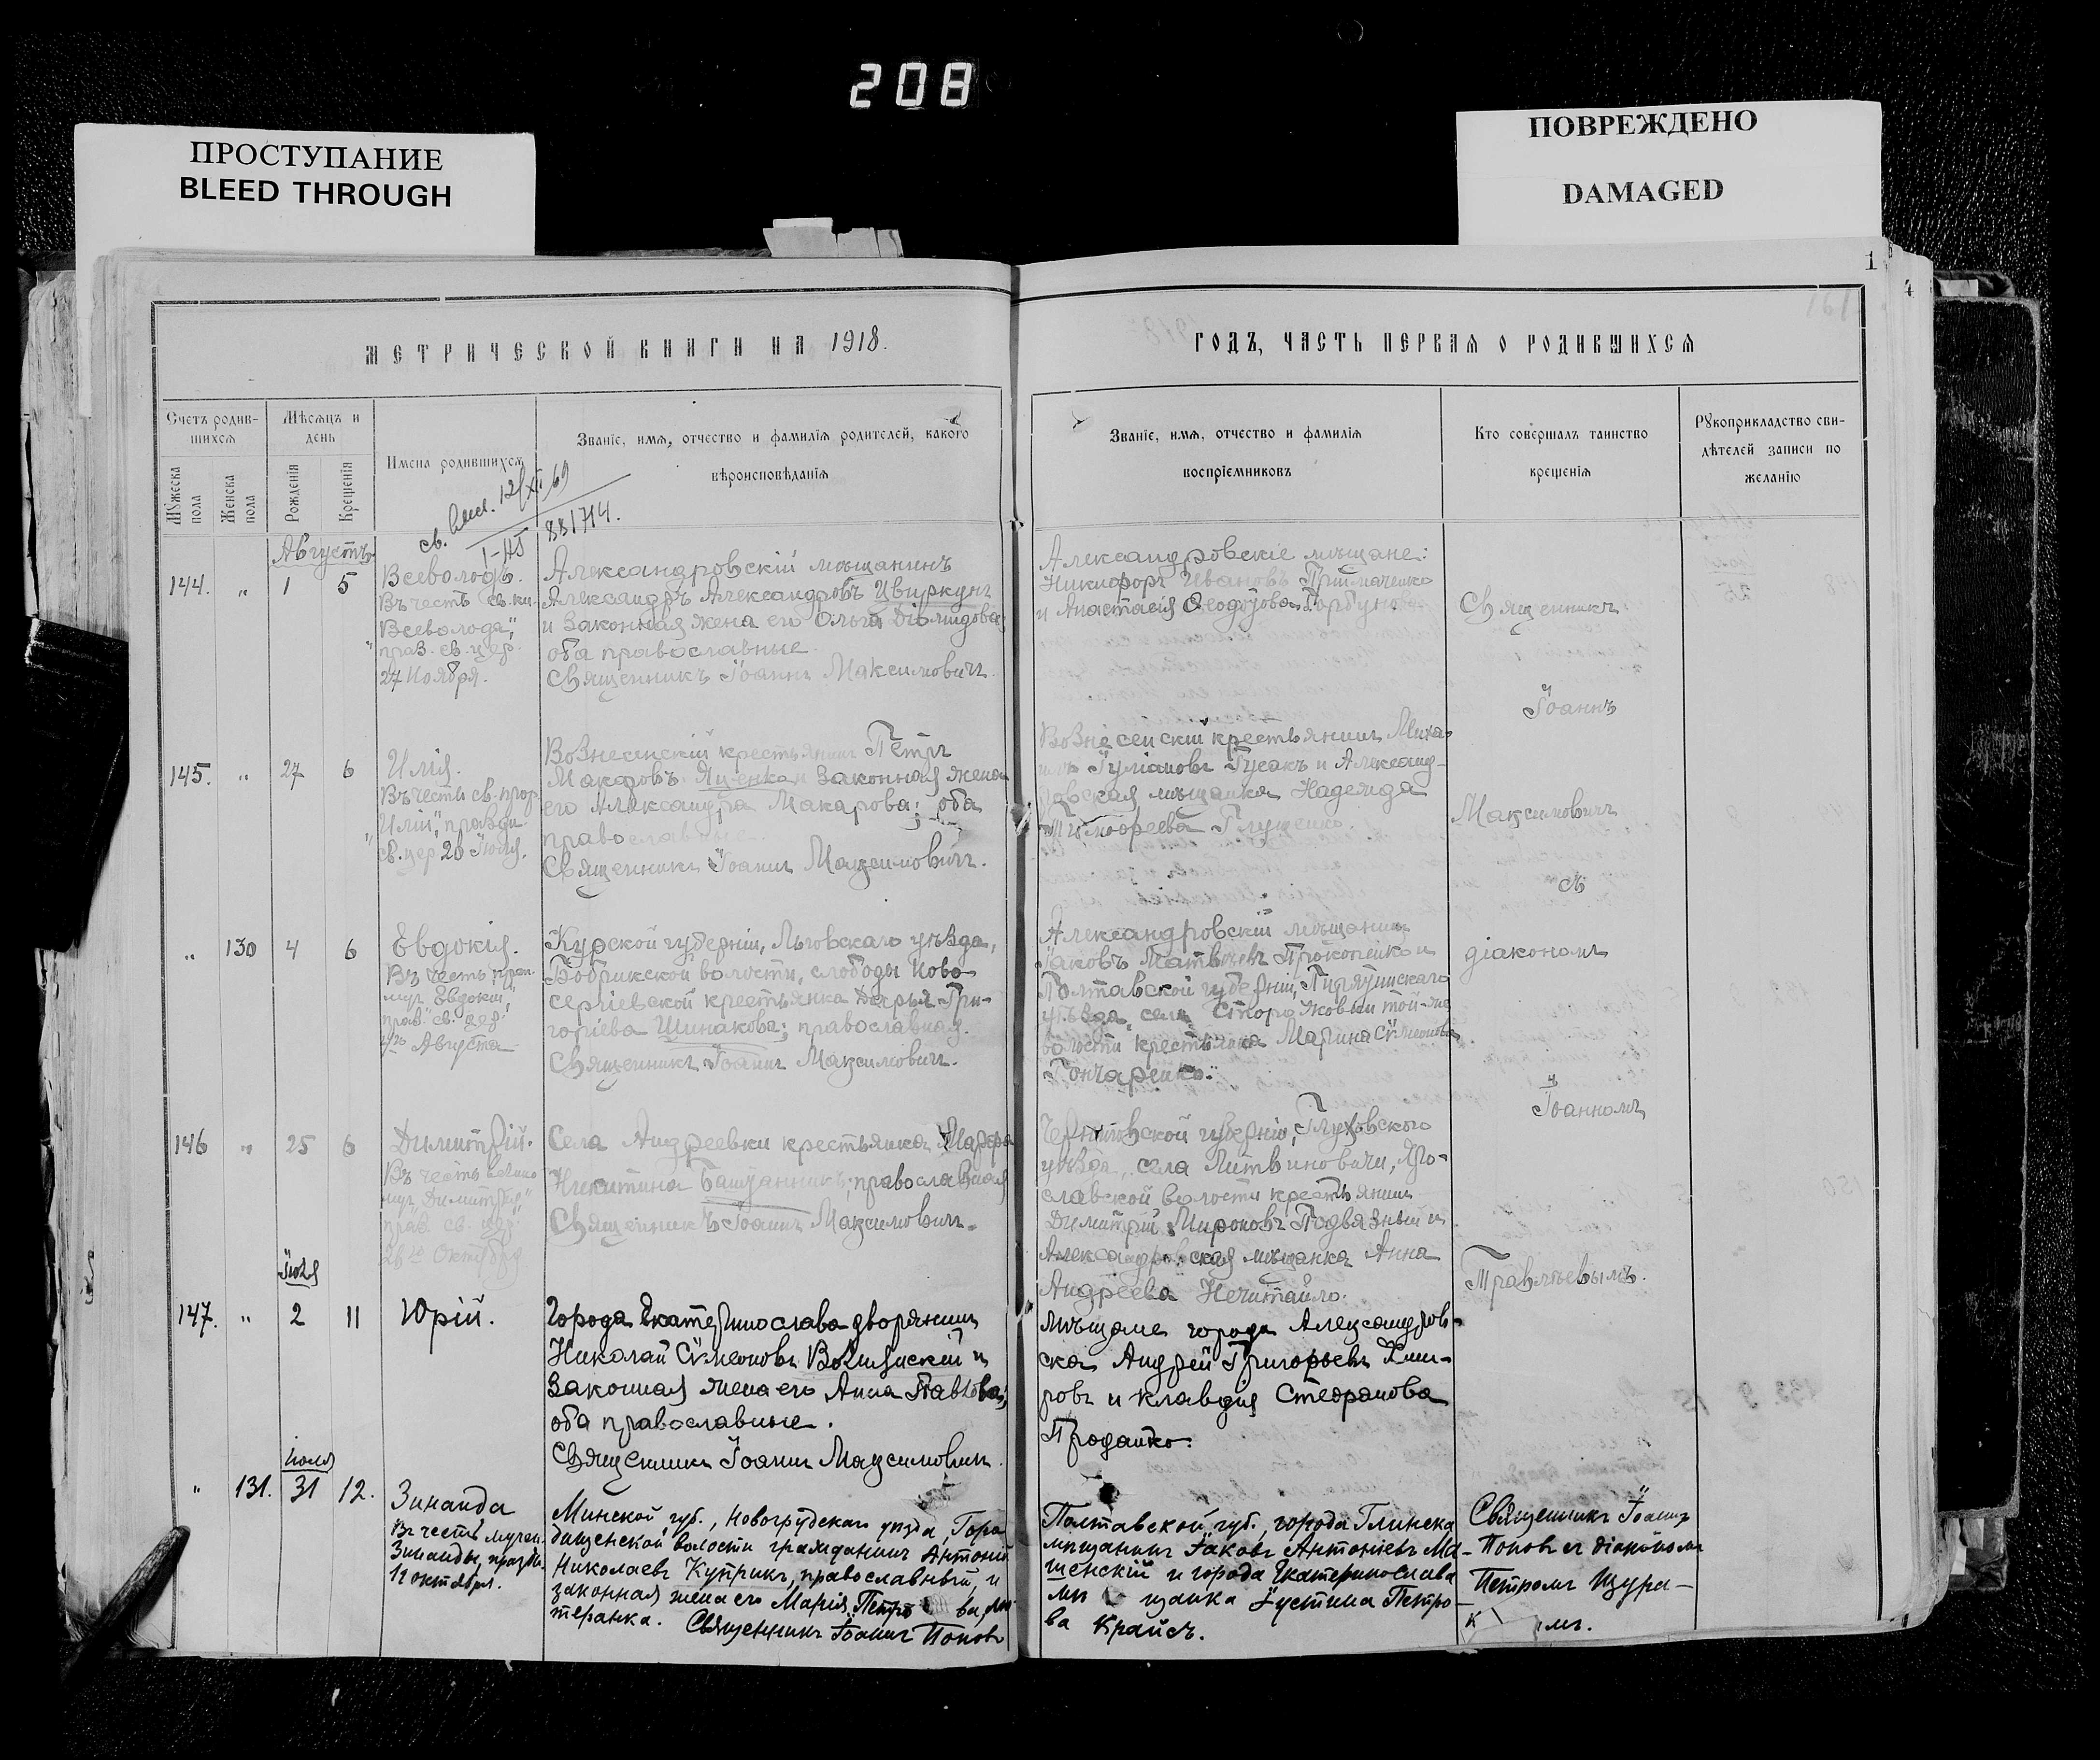 208
ПРОСТУПАНИЕ
BLEED THROUGH
ПОВРЕЖДЕНО
DAMAGED
1
МЕТРИЧЕСКОЙ КНИГИ НА 1918.
Счетъ родив-
шихся
Мѣсяцъ и
день
Мужеска
пола
Женска
пола
Рожденія
Крещенія
Имена родившихся
Званіе, имя, отчество и фамилія родителей, какого
вѣроисповѣданія
881714.
Августъ
144. " 1 5
Всеволодъ.
Въ честь св. кн.
"Всеволода",
праз. св. цер.
27 Ноября.
Александровскій мѣщанинъ
Александръ Александровъ Цвиркунъ
и законная жена его Ольга Діомидова
оба православные.
Священникъ Іоаннъ Максимовичъ.
145. " 27 6
Илія.
Въ честь св. прор.
"Иліи", праздн.
св. цер. 20 Іюля.
Вознесенскій крестьянинъ Петръ
Макаровъ Яценко и законная жена
его Александра Макарова; оба
православные.
Священникъ Іоаннъ Максимовичъ.
" 130 4 6
Евдокія.
Въ честь преп.
муч. Евдокіи,
праз. св. цер.
Августа
Курской губерніи, Льговскаго уѣзда,
Бобрикской волости, слободы Ново-
сергіевской крестьянка Дарья Гри-
горіева Шинакова; православная.
Священникъ Іоаннъ Максимовичъ.
146 " 25 6
Димитрій.
Въ честь велико
муч. "Димитрія"
праз. св. цер.
26го Октября
Села Андреевки крестьянка
Никитина православная
Священникъ Іоаннъ Максимовичъ.
Іюля
147. " 2 11
Юрій.
Города Екатеринослава дворянинъ
Николай Сѵмеоновъ Волынскій и
законная жена его Анна Павлова,
оба православные.
Священникъ Іоаннъ Максимовичъ.
Іюля
" 131. 31 12.
Зинаида
Въ честь мучен.
Зинаиды, праздн.
11 октября.
Минской губ., Новогрудскаго уѣзда, Горо
дищенской волости гражданинъ Антоній
Николаевъ Куприкъ, православный, и
законная жена его Марія Петро ва, лю
теранка. Священникъ Іоаннъ Поповъ
ГОДЪ, ЧАСТЬ ПЕРВАЯ О РОДИВШИХСЯ
Званіе, имя, отчество и фамилія
воспріемниковъ
Кто совершалъ таинство
крещенія
Рукоприкладство сви-
дѣтелей записи по
желанію
Александровскіе мѣщане:
Никифоръ Ивановъ Приймаченко
и Анастасія Ѳеодотова Горбунова
Вознесенскій крестьянинъ Миха-
илъ Іуліановъ Гусакъ и Александ-
ровская мѣщанка Надежда
Тимоѳеева Глущенко.
Александровскій мѣщанинъ
Іаковъ Матвѣевъ Прокопенко и
Полтавской губерніи, Пирятинскаго
уѣзда, села той-же
волости крестьянка Марина Сѵмеонова
Гончаренко.
Черниговской губерніи, Глуховскаго
уѣзда, села Литвиновичи, Яро-
славской волости крестьянинъ
Димитрій Мироновъ Подвязный и
Александровская мѣщанка Анна
Андреева Нечитайло.
Мѣщане города Александров-
ска Андрей Григорьевъ
и Клавдія Стефанова
Проданко.
Полтавской губ., города Глинска
мѣщанинъ Іаковъ Антоніевъ Ма-
шенскій и города Екатеринослава
мѣ щанка Іустина Петро
ва Крайсъ.
Священникъ
Іоаннъ
Максимовичъ
съ
діакономъ
Іоанномъ
Травлѣевымъ.
Священникъ Іоаннъ
Поповъ съ діакономъ
Петромъ Щура-
к мъ.